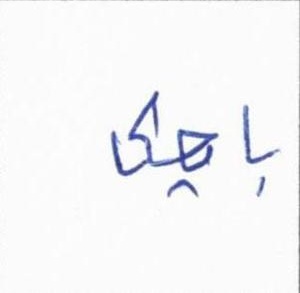 باچک